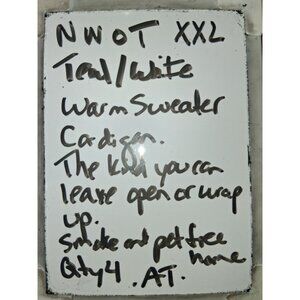 NWOT XXL
Teal/White
Warm Sweater
Cardigan.
The kind you can
leave open or wrap
up.
Smoke and pet free
home
Qty 4 . AT.